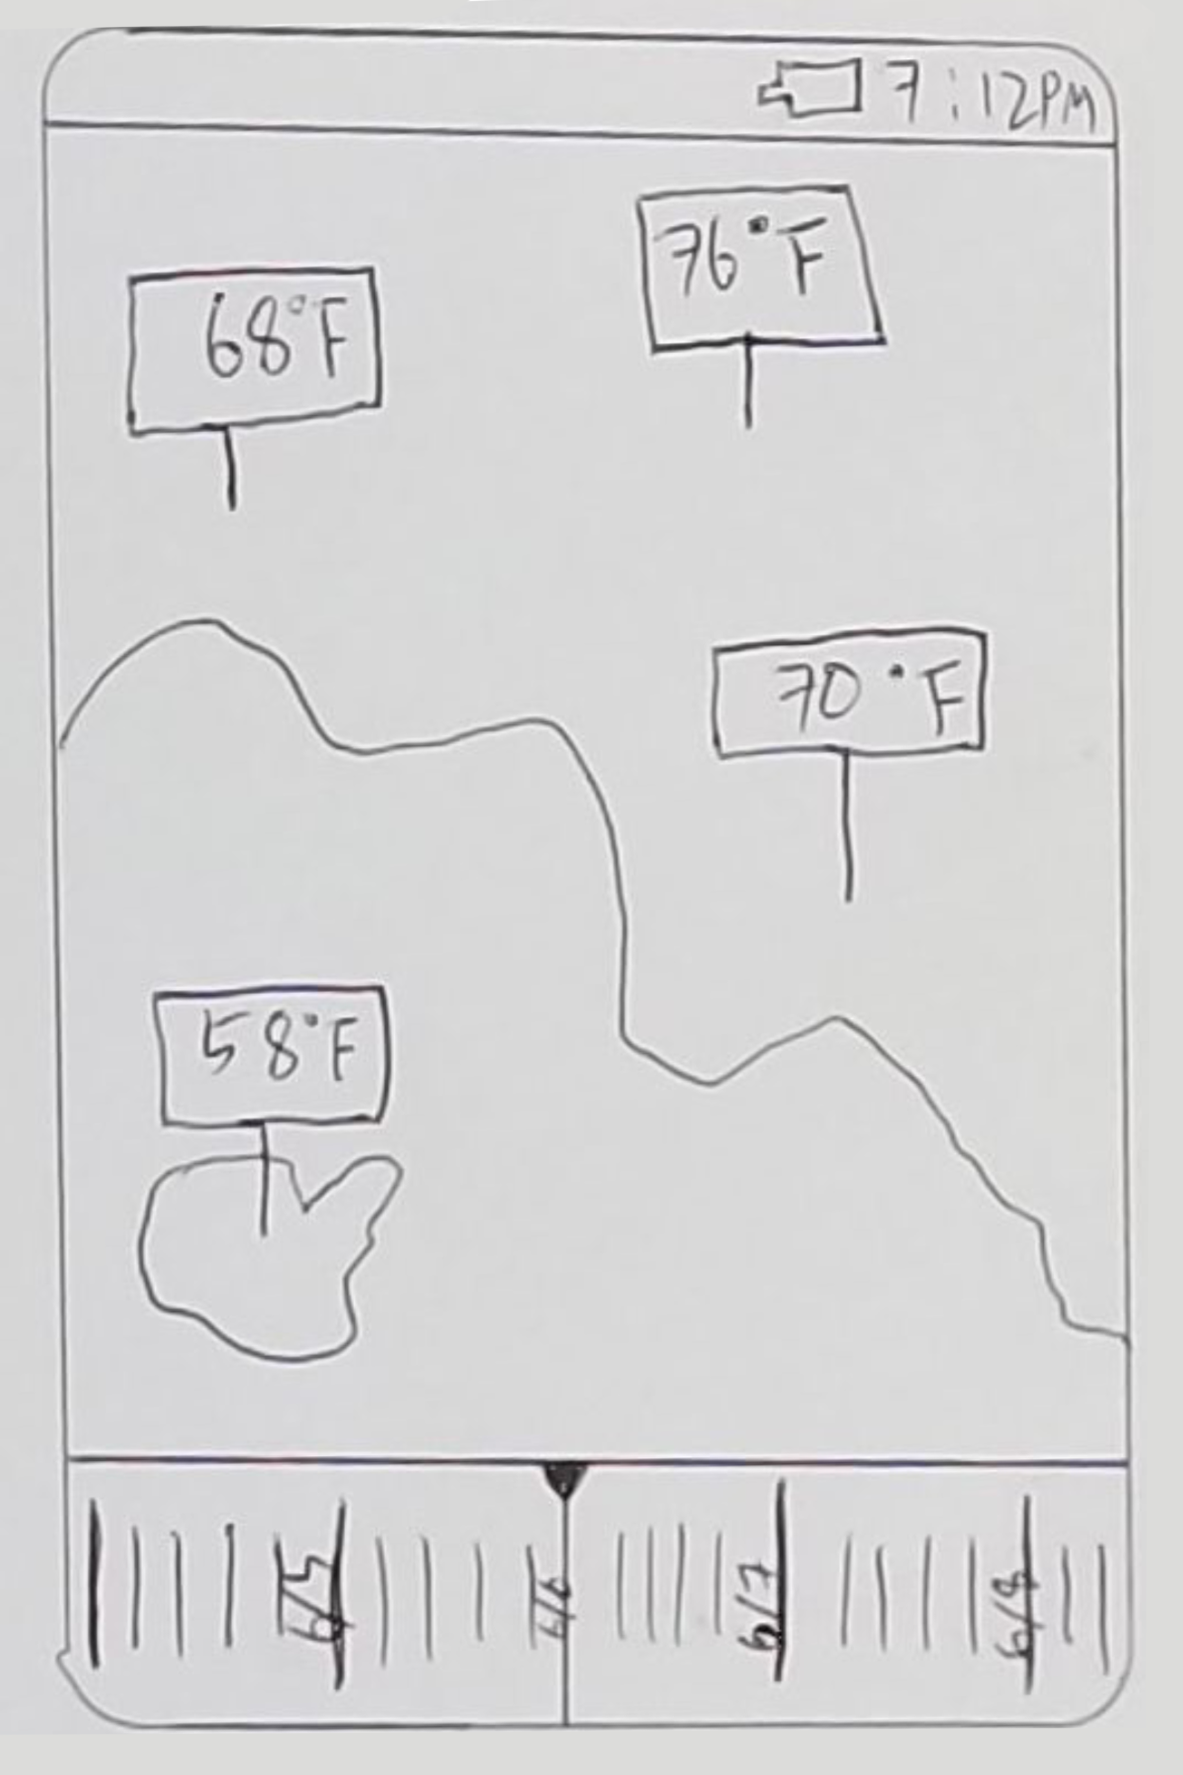 7:12PM
76°F
68°F
70°F
58°F
6/5 6/6 6/7 6/8